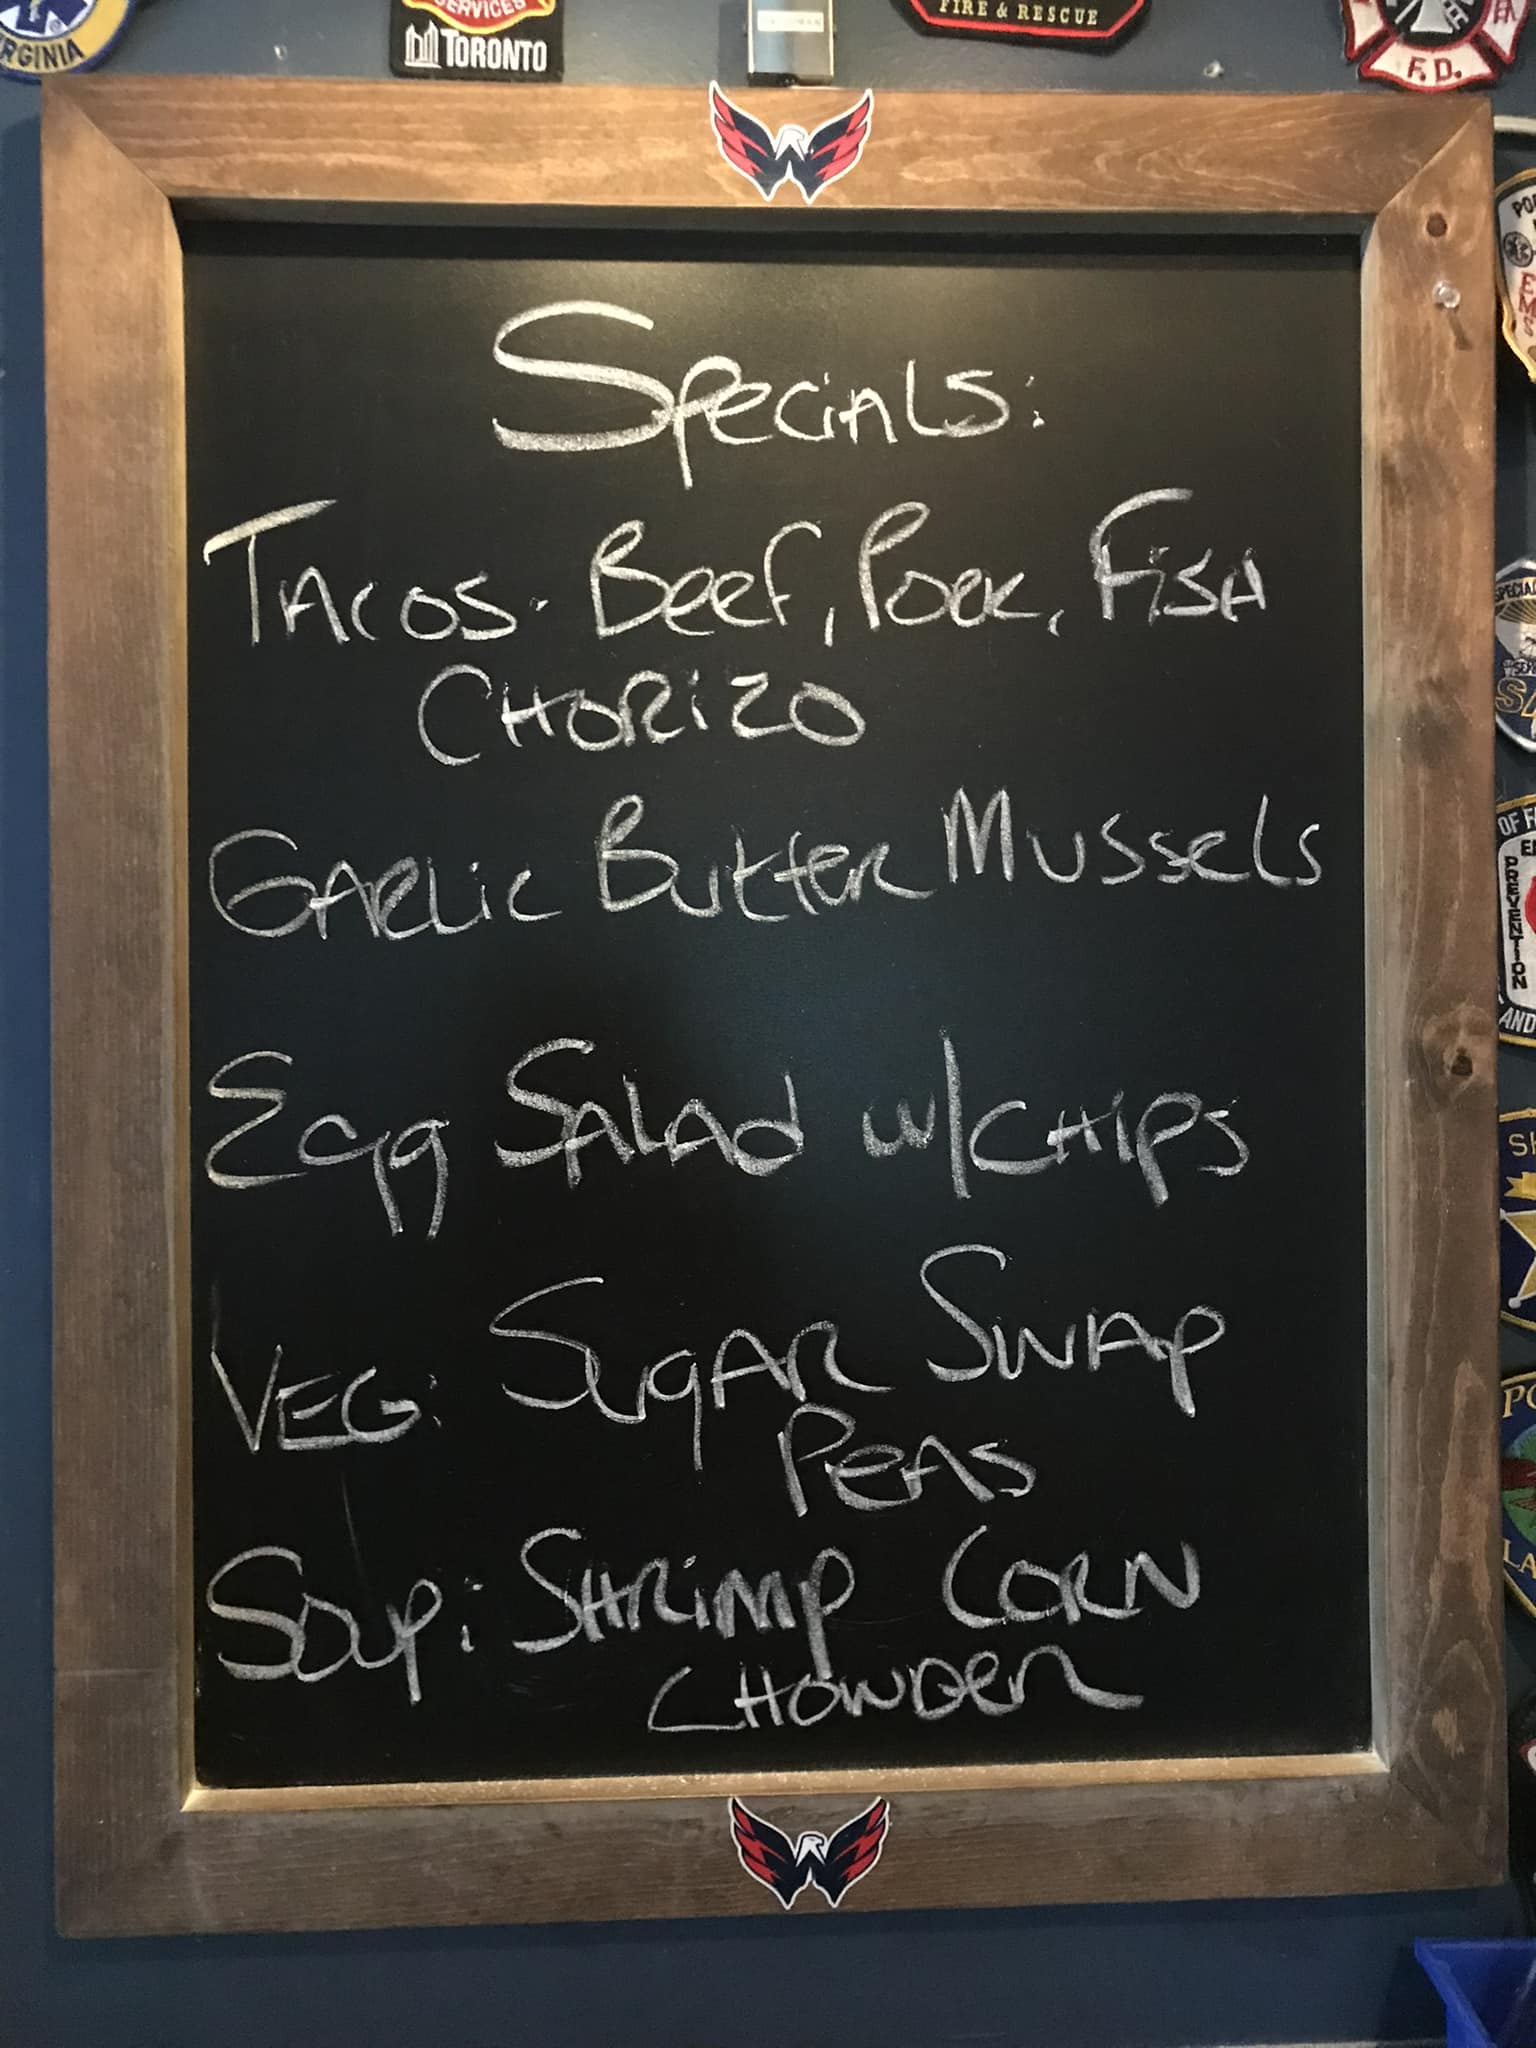 SERVICES
TORONTO
FIRE & RESCUE
F.D.
Specials:
Tacos. Beef, Pork, Fish
Chorizo
Garlic Butter Mussels
Egg Salad w/chips
Veg: Sugar Swap
Peas
Soup: Shrimp Corn
Chowder
EMS
PREVENTION
AND